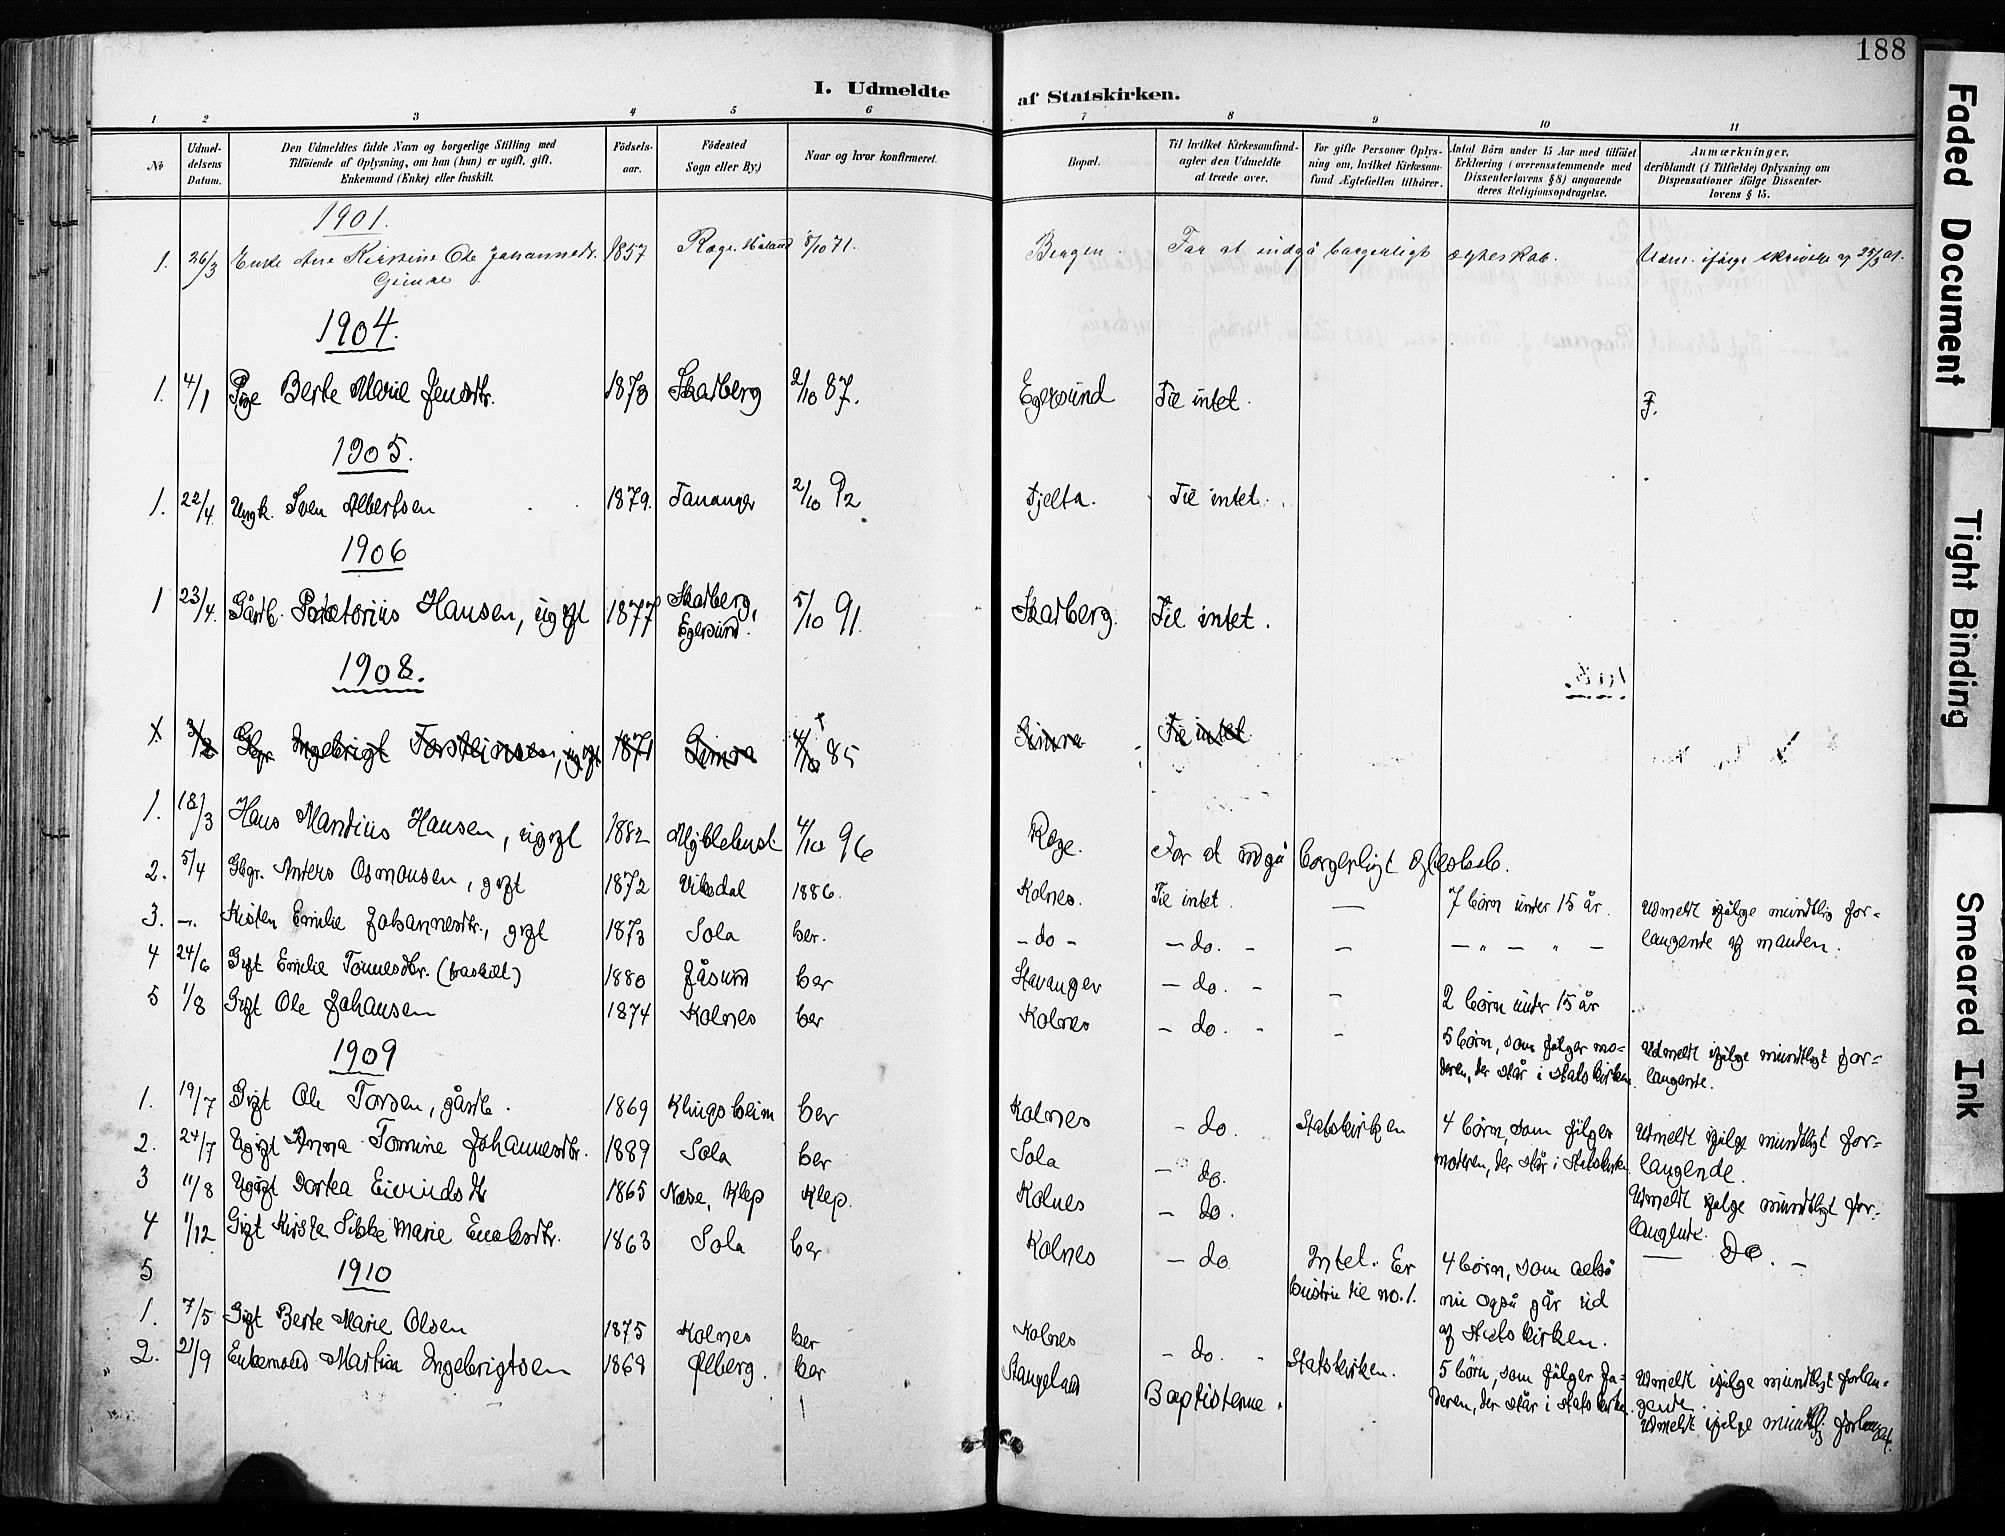 188
I. Udmeldte af Statskirken.
1 2 3 4 5 6 7 8 9 10 11
No
Udmeldelsens Datum.
Den Udmeldtes fulde Navn og borgerlige Stilling med
Tilføiende af Oplysning, om han (hun) er ugift, gift,
Enkemand (Enke) eller fraskilt.
Fødselsaar.
Fødested
Sogn eller By.)
Naar og hvor konfirmeret.
Bopæl.
Til hvilket Kirkesamfund
agter den Udmeldte
at træde over.
For gifte Personer Oplys-
ning om, hvilket Kirkesam-
fund Ægtefællen tilhører.
Antal Børn under 15 Aar med tilføiet
Erklæring (overensstemmende med
Dissenterlovens § 8) angaaende
deres Religionsopdragelse.
Anmærkninger,
deriblandt (i Tilfælde) Oplysning om
Dispensationer ifølge Dissenter-
lovens § 15.
1901.
1. 26/3 Enke Ane Kirstine Ole Johannesdr. 1857 Røge, Håland 8/10 71. Bergen. For at indgå borgerligt ægteskab. Udm. ifølge skrivelse af 25/3 01.
1904.
1. 4/1 Pige Berte Marie Jensdtr. 1873 Skadberg 2/10 87. Egersund Til intet. F.
1905.
1. 22/4 Ungk. Sven Albertsen 1879. Tananger 2/10 92 Fjelta. Til intet.
1906
1 23/4. Gårdb. Prætorius Hansen, ugift 1877 Skadberg, Egersund. 5/10 91. Skadberg. Til intet.
1908.
1. 3/2 Gbgr. Ingebrigt Torsteinsen, ugift 1871 Gimra 4/10 85 Gimra Til intet
1. 18/3 Hans Mandius Hansen, ugift 1882 Myklebust 4/10 96 Røge. For at indgå borgerligt ægteskab.
2. 5/4 Gbgr. Anders Osmonsen, gift 1872 Vikedal 1886. Kolnes. Til intet. — 7 børn under 15 år. Udmeldt ifølge mundtlig for-
3. —. Kisten Emilie Johannesdtr., gift 1873 Sola her. - do - - do. - — — „ — „ — langende af manden.
4 24/6 Gift Emilie Tønnesdtr. (fraskilt) 1880 Jåsund her Stavanger - do. - — 2 børn under 15 år
5 1/8 Gift Ole Johansen 1874 Kolnes her Kolnes - do. - — 5 børn, som følger mo-
deren, der står i statskirken. Udmeldt ifølge mundtligt for-
langende.
1909
1. 19/7 Gift Ole Torsen, gårdb. 1869 Klingsheim her Kolnes - do. Statskirken 4 børn, som følger
moderen, der står i Statskirken Udmeldt ifølge mundtligt for-
langende.
2. 24/7 Ugift Anna Tomine Johannesdtr. 1889 Sola her Sola - do.
3 11/8 Ugift Dorthea Eivindsdtr 1865 Næse, Klep Klep. Kolnes - do. Udmeldt ifølge mundtligt for-
langende.
4 1/12 Gift Kirsten Sikke Marie 1863 Sola her Kolnes - do Intet. Er
hustru til no. 1. 4 børn, som altså
nu også går ud
af Statskirken. — Do. —
5
1910
1. 7/5 Gift Berte Marie Olsen 1875 Kolnes her Kolnes - do. - Statskirken. 5 børn, som følger fa-
deren, der står i statskirken. Udmeldt ifølge mundtligt forlan-
gende.
2. 21/9 Enkemand Martin Ingebrigtsen 1868 Ølberg. her Stangeland Baptisterne. Udmeldt ifølge mundtlig forlangt.
Faded Document
Tight Binding
Smeared Ink